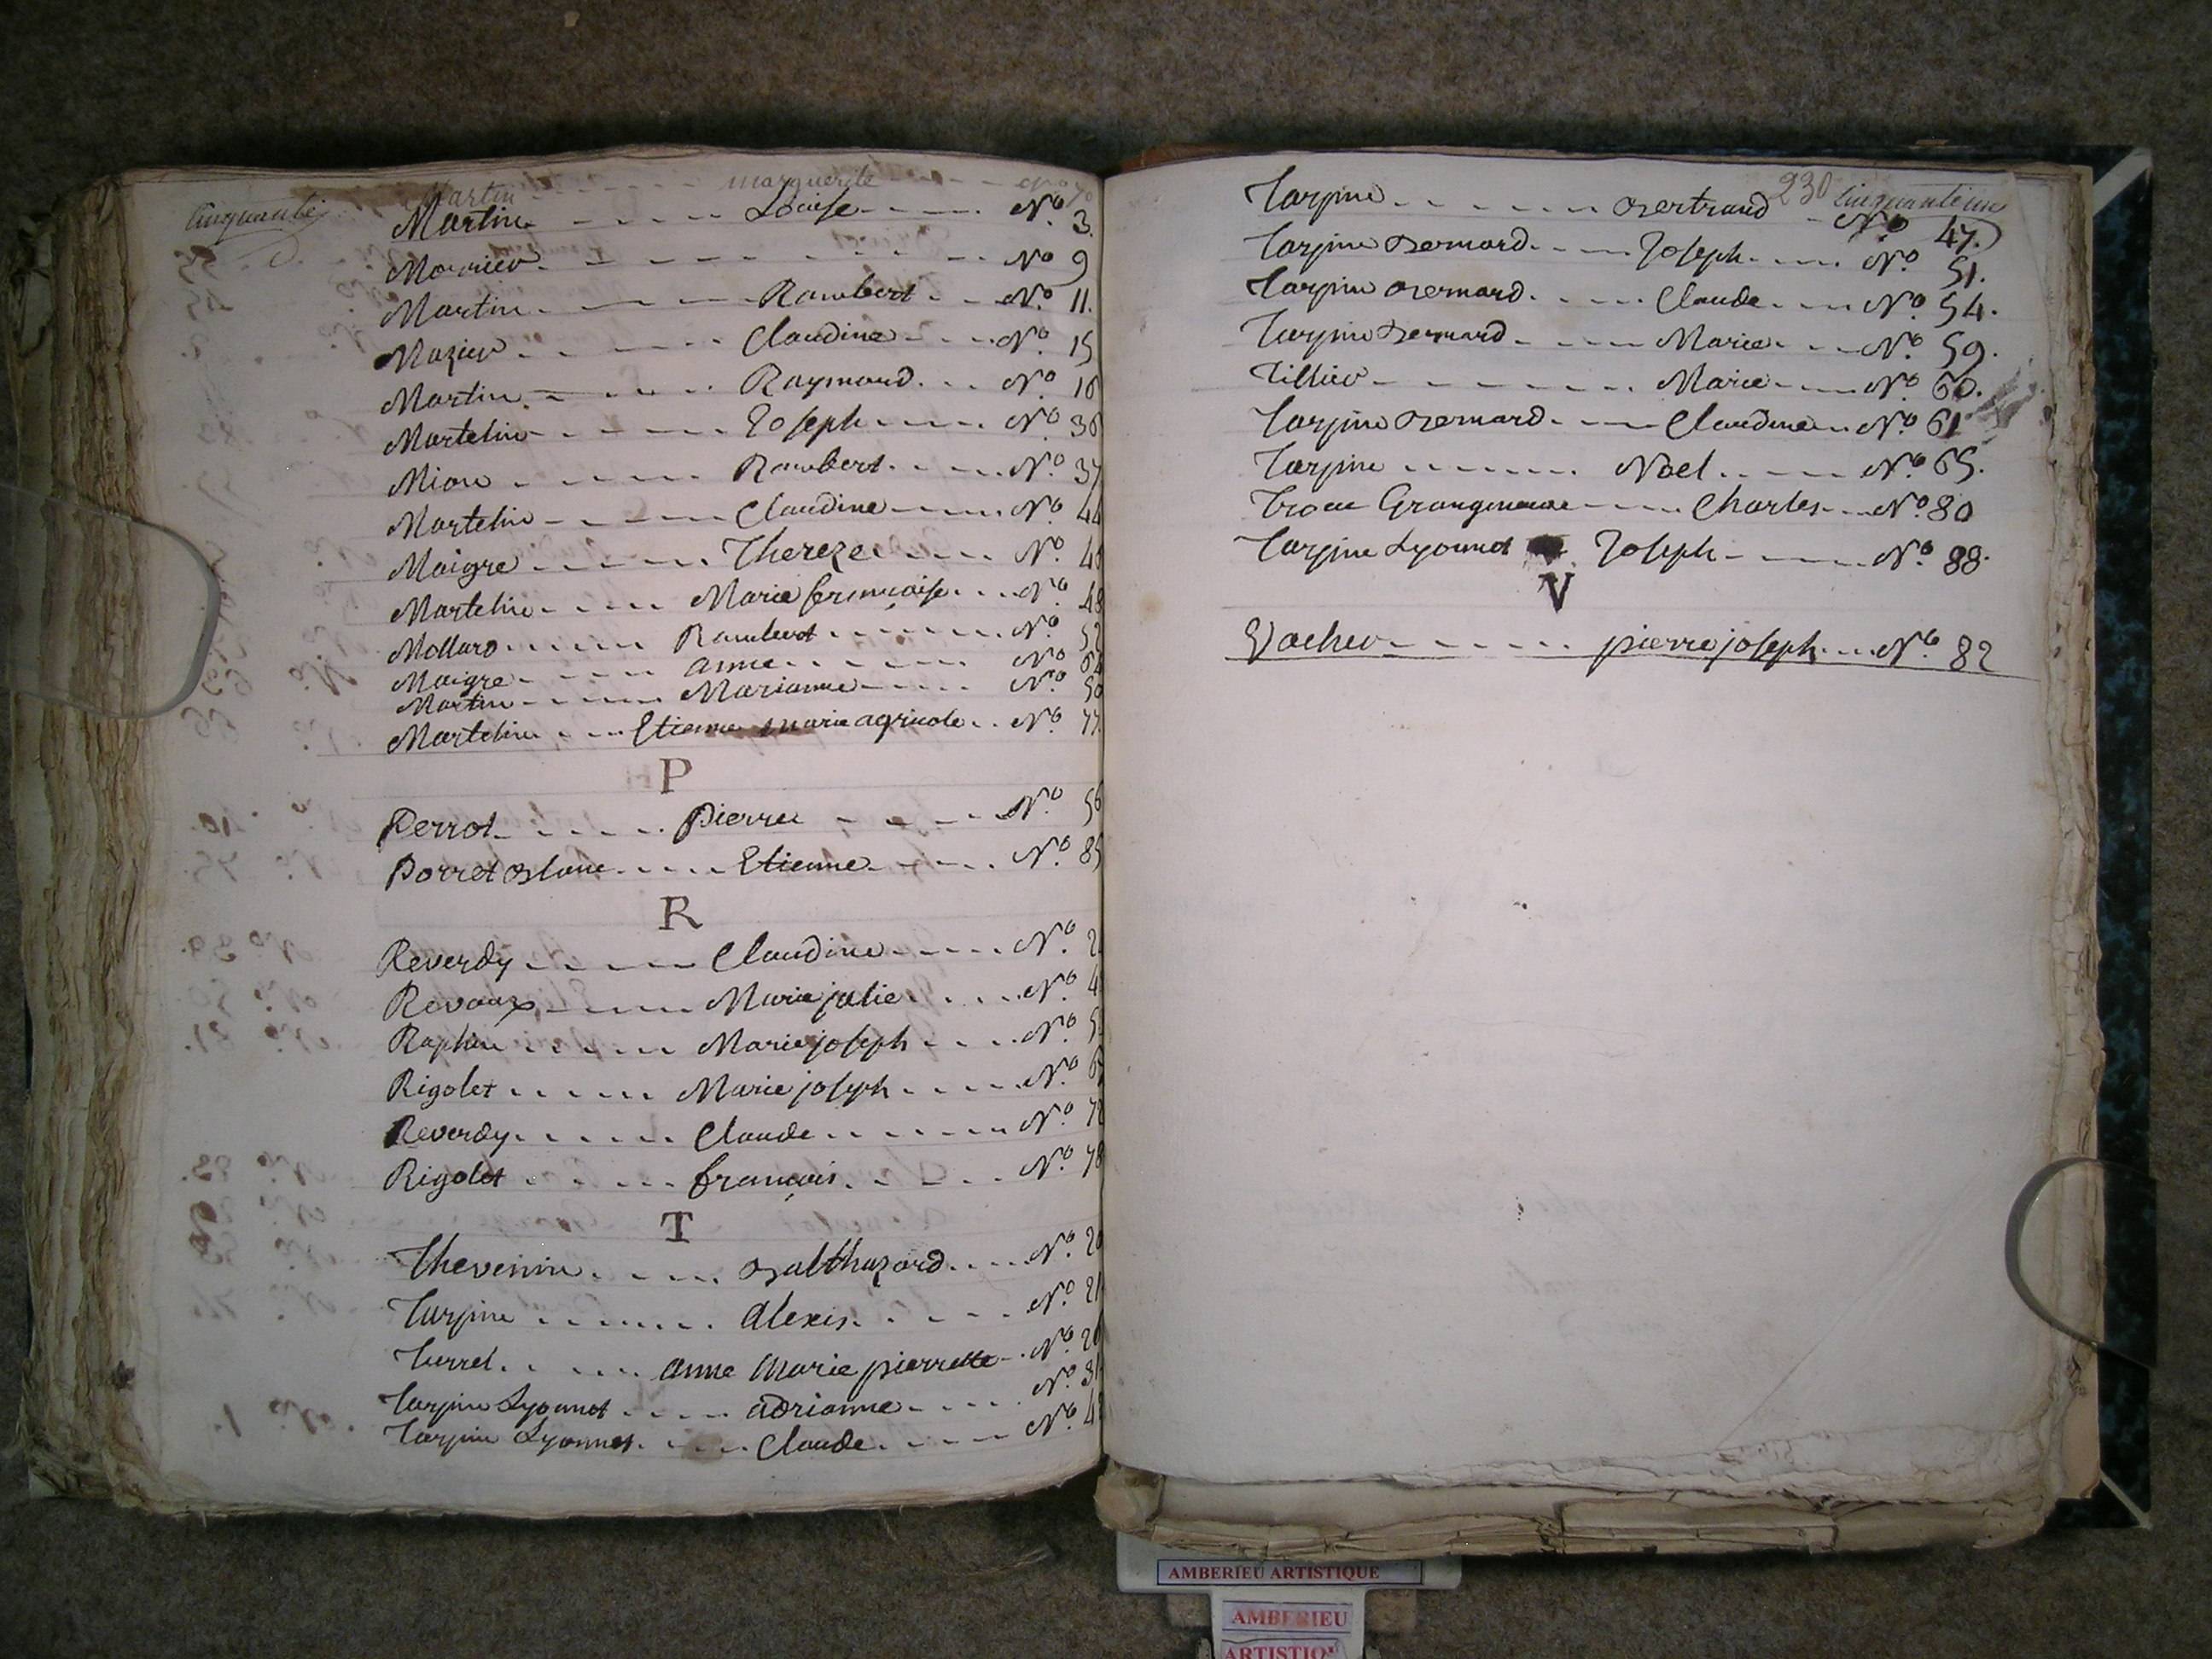 Cinquante
Martin - - - - marguerite - - - - N° 70
Martin - - - - Louise - - - - N° 3.
Mounier - - - - - - - - N° 9
Martin - - - - Rambert - - N° 11.
Mazier - - - - Claudine - - - N° 15
Martin - - - - Raymond - - N° 16
Martelin - - - - Joseph - - - - N° 36
Mion - - - - Rambert - - - - N° 37
Martelin - - - - Claudine - - - - N° 44
Maigre - - - - Thereze - - - - N°
Martelin - - - - Marie françoise - - - N° 48
Mollard - - - - Rambert - - - - N° 52
Maigre - - - - anne - - - - N°
Martin - - - - Marianne - - - - N° 50
Martelin - - - Etienne marie agricole - - N° 77.
P
Perrot - - - - Pierre - - - - N° 56
Porret Blanc - - - - Etienne - - - - N° 85
R
Reverdy - - - - Claudine - - - - N° 2
Revoux - - - - Marie julie - - - - N° 4
Raphin - - - - Marie joseph - - - - N° 5
Rigolet - - - - Marie joseph - - - - N° 6
Reverdy - - - - Claude - - - - N° 72
Rigolet - - - - françois - - - - N° 78
T
Thevenin - - - - Balthazard - - - - N° 20
Tarpin - - - - alexis - - - - N° 21
Turrel - - - - anne Marie pierrette - - N° 26
Tarpin Lyonnet - - - - adrianne - - - - N° 31
Tarpin Lyonnet - - - - Claude - - - - N° 4
230 Cinquante un
Tarpin - - - - Bertrand - N° 47.
Tarpin Bernard - - - Joseph - - - - N° 51.
Tarpin Bernard - - - - Claude - - - N° 54.
Tarpin Bernard - - - - Marie - - - N° 59.
Tillier - - - - Marie - - - N° 60.
Tarpin Bernard - - - Claudine - - N° 61
Tarpin - - - - Noel - - - - N° 65.
Troue Grangeneuve - - - - Charles - - - N° 80
Tarpin Lyonnet Joseph - - - - N° 88.
V
Vacher - - - - pierre joseph - - - N° 82
AMBERIEU ARTISTIQUE
AMBERIEU
ARTISTIQU